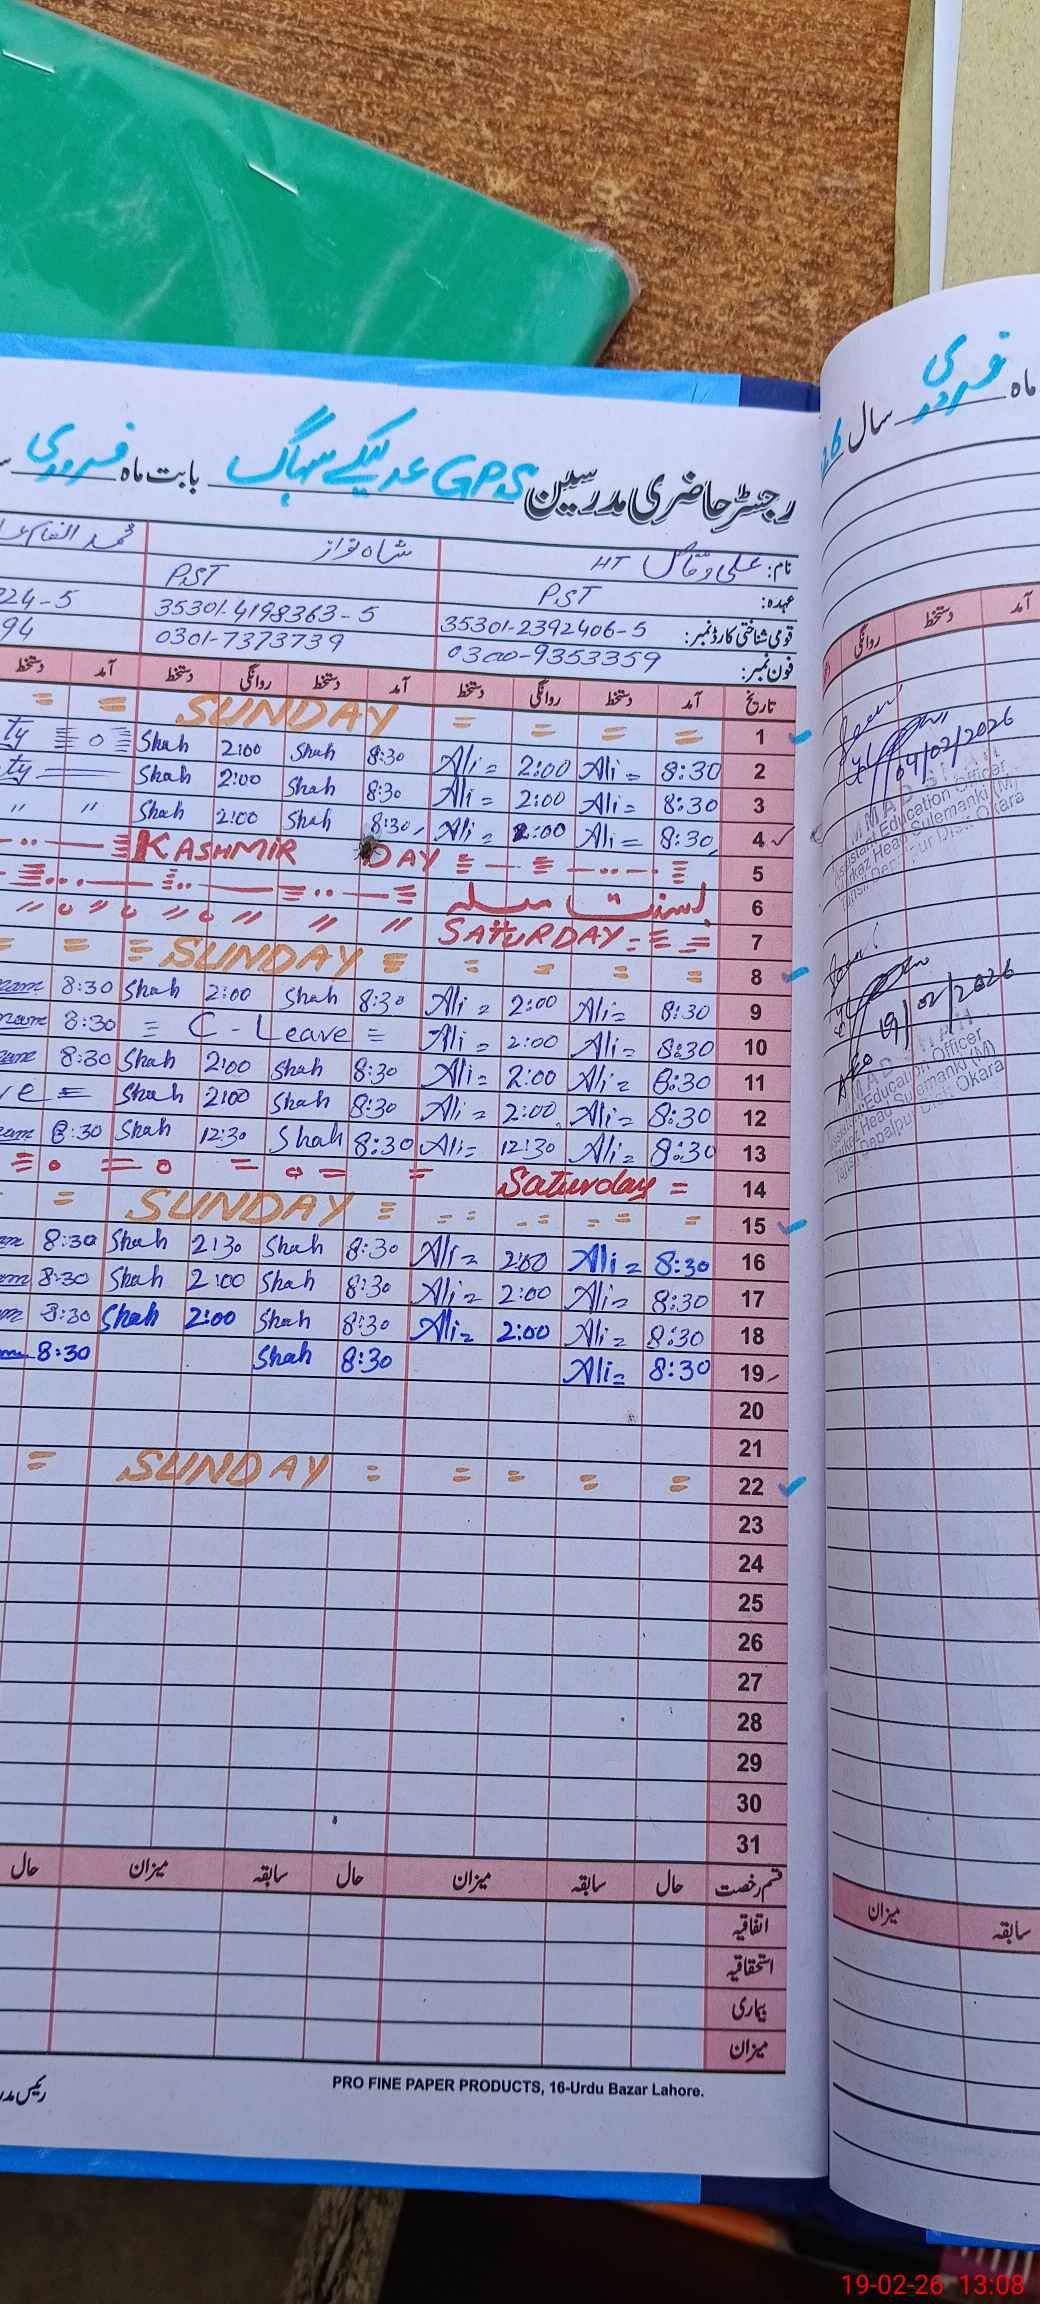 رجسٹر حاضری مدرسین GPS عدیکے سہاگ بابت ماہ فروری
نام: علی وقاص HT شاہ نواز
عہدہ: PST PST
قومی شناختی کارڈ نمبر: 35301-2392406-5 35301-4198363-5 224-5
فون نمبر: 0300-9353359 0301-7373739 94
تاریخ آمد دستخط روانگی دستخط آمد دستخط روانگی دستخط آمد دستخط
1 = = = = SUNDAY = =
2 8:30 Ali = 2:00 Ali = 8:30 Shah 2:00 Shah ty
3 8:30 Ali = 2:00 Ali = 8:30 Shah 2:00 Shah ty
4 8:30 Ali = 2:00 Ali = 8:30 Shah 2:00 Shah " "
5 KASHMIR DAY
6 بسنت میلہ
7 SATURDAY = " " " " " "
8 = = = = SUNDAY = = =
9 8:30 Ali = 2:00 Ali = 8:30 Shah 2:00 Shah 8:30
10 8:30 Ali = 2:00 Ali = = C-Leave = 8:30
11 8:30 Ali = 2:00 Ali = 8:30 Shah 2:00 Shah 8:30
12 8:30 Ali = 2:00 Ali = 8:30 Shah 2:00 Shah ve =
13 8:30 Ali = 12:30 Ali = 8:30 Shah 12:30 Shah 8:30
14 Saturday =
15 = = = = SUNDAY =
16 8:30 Ali = 2:00 Ali = 8:30 Shah 2:30 Shah 8:30
17 8:30 Ali = 2:00 Ali = 8:30 Shah 2:00 Shah 8:30
18 8:30 Ali = 2:00 Ali = 8:30 Shah 2:00 Shah 8:30
19 8:30 Ali = 8:30 Shah 8:30
20
21
22 = = = = = SUNDAY =
23
24
25
26
27
28
29
30
31
قسم رخصت حال سابقہ میزان حال سابقہ میزان حال
اتفاقیہ
استحقاقیہ
بیماری
میزان
PRO FINE PAPER PRODUCTS, 16-Urdu Bazar Lahore.
ماہ فروری سال 26
آمد دستخط روانگی
04/02/2026
Assistant Education Officer
Markaz Head Sulemanki (M)
19/02/2026
Education Officer
Markaz Head Sulemanki (M)
Tehsil Depalpur Distt Okara
سابقہ میزان
19-02-26 13:08